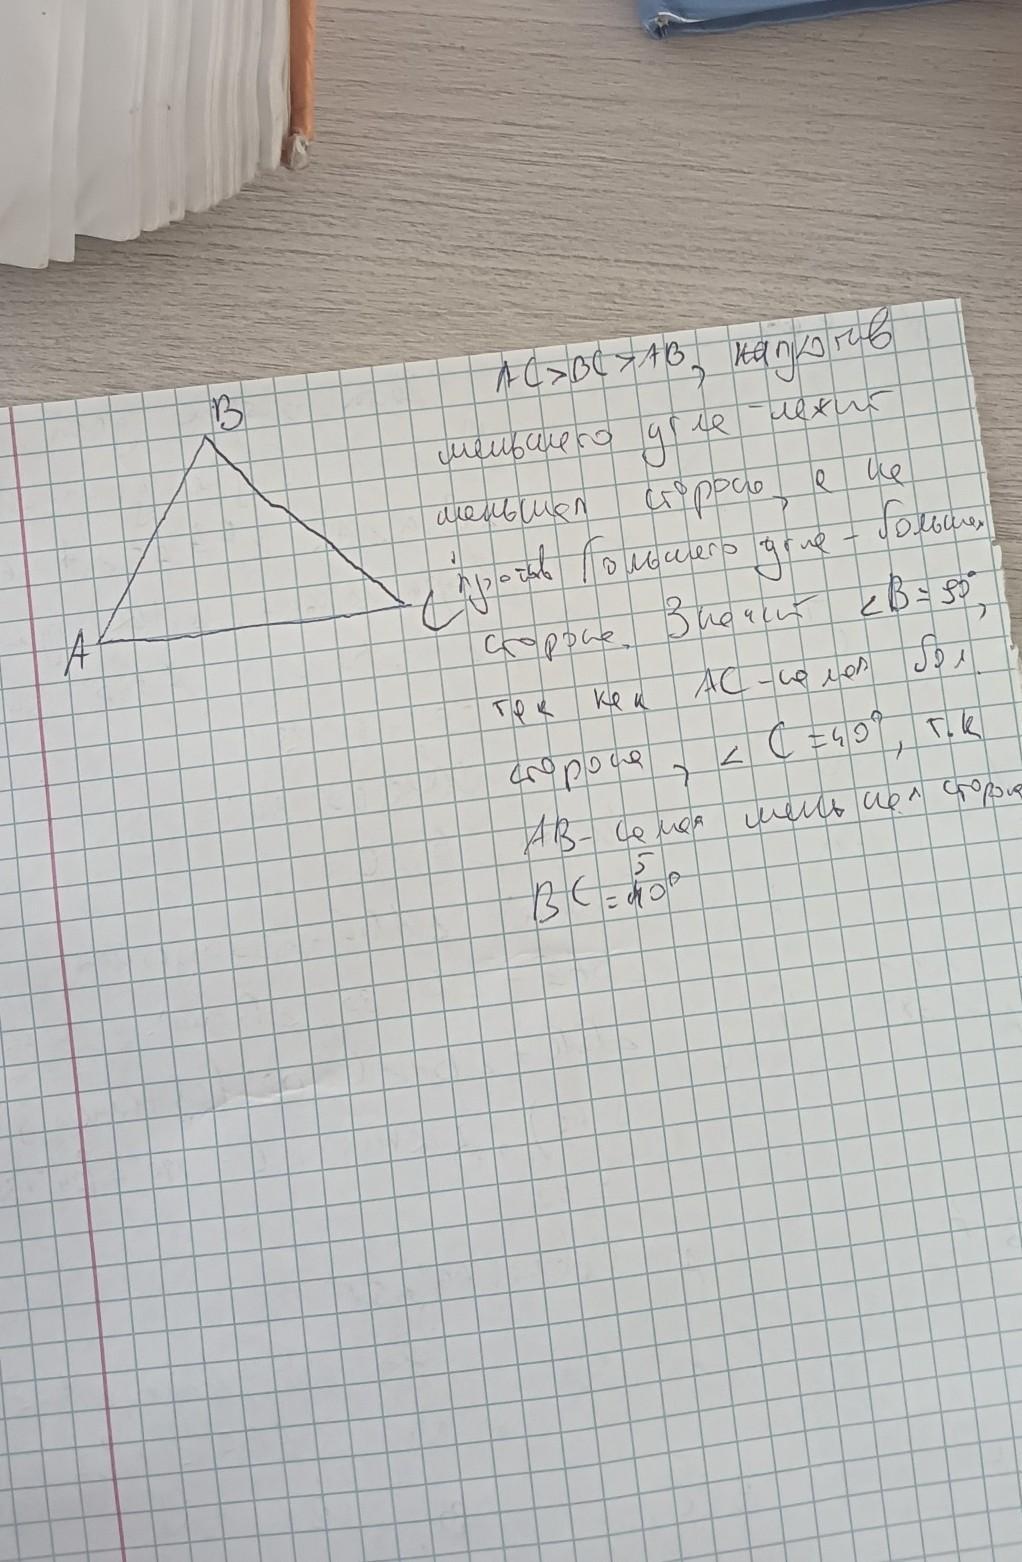 B
A
C
AC>BC>AB, напротив
меньшего угла - лежит
меньшая сторона, а на
против большего угла - больша,
сторона. Значит ∠B=90°,
так как AC - самая бол.
сторона, ∠C=40°, т.к
AB - самая меньшая сторона
5
BC=40°